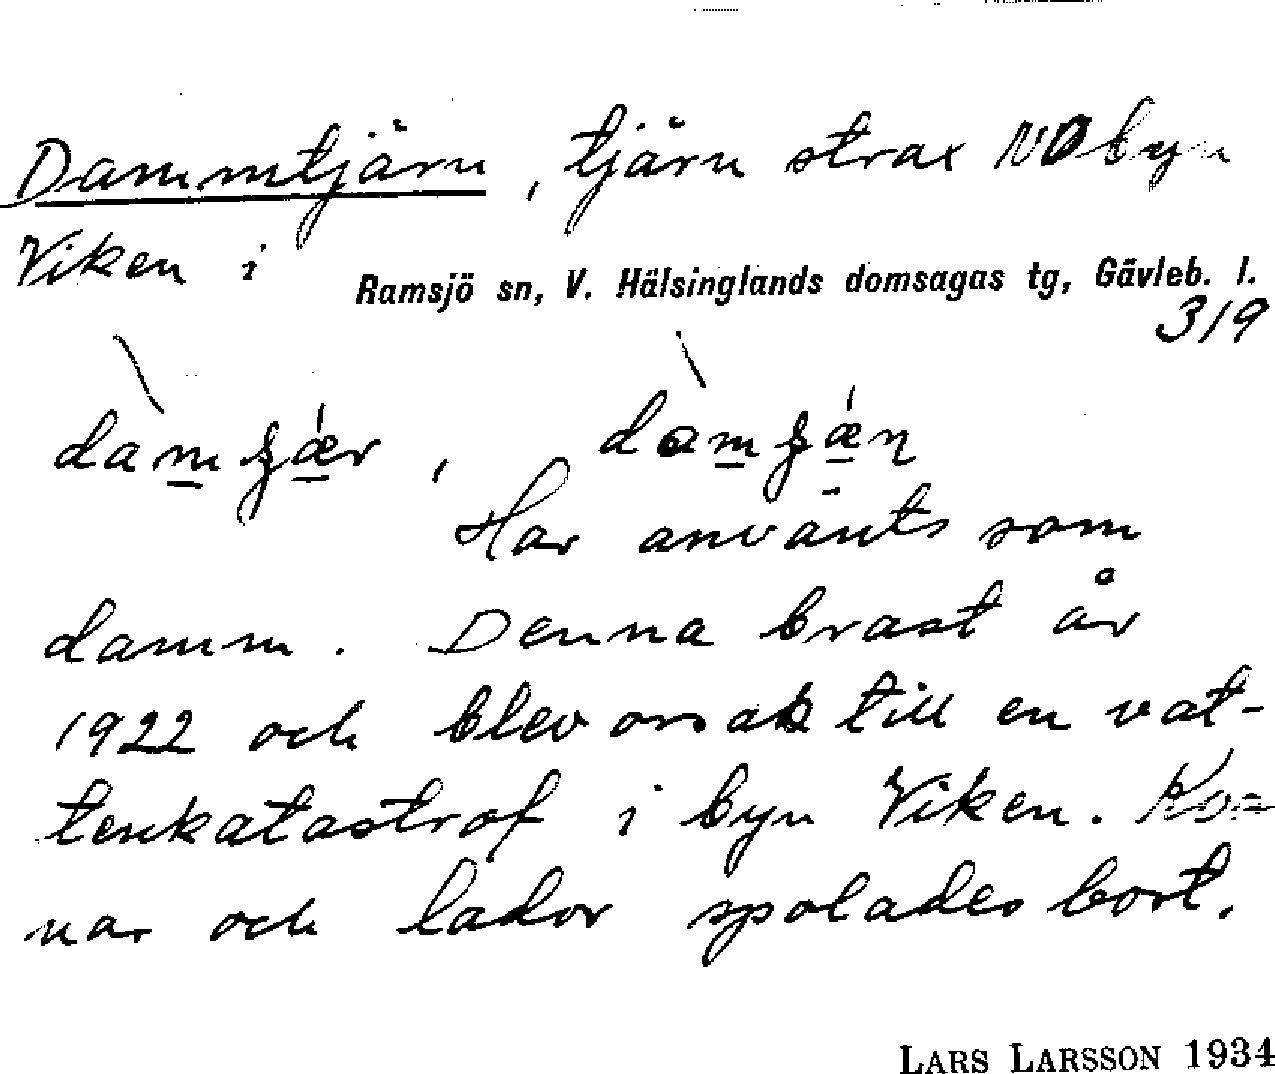 Dammtjärn, tjärn strax NO byn
Viken i
Ramsjö sn, V. Hälsinglands domsagas tg, Gävleb. l.
319
Har använts som
damm. Denna brast år
1922 och blev orsak till en vat-
tenkatastrof i byn Viken. Kvar-
nar och lador spolades bort.
LARS LARSSON 1934